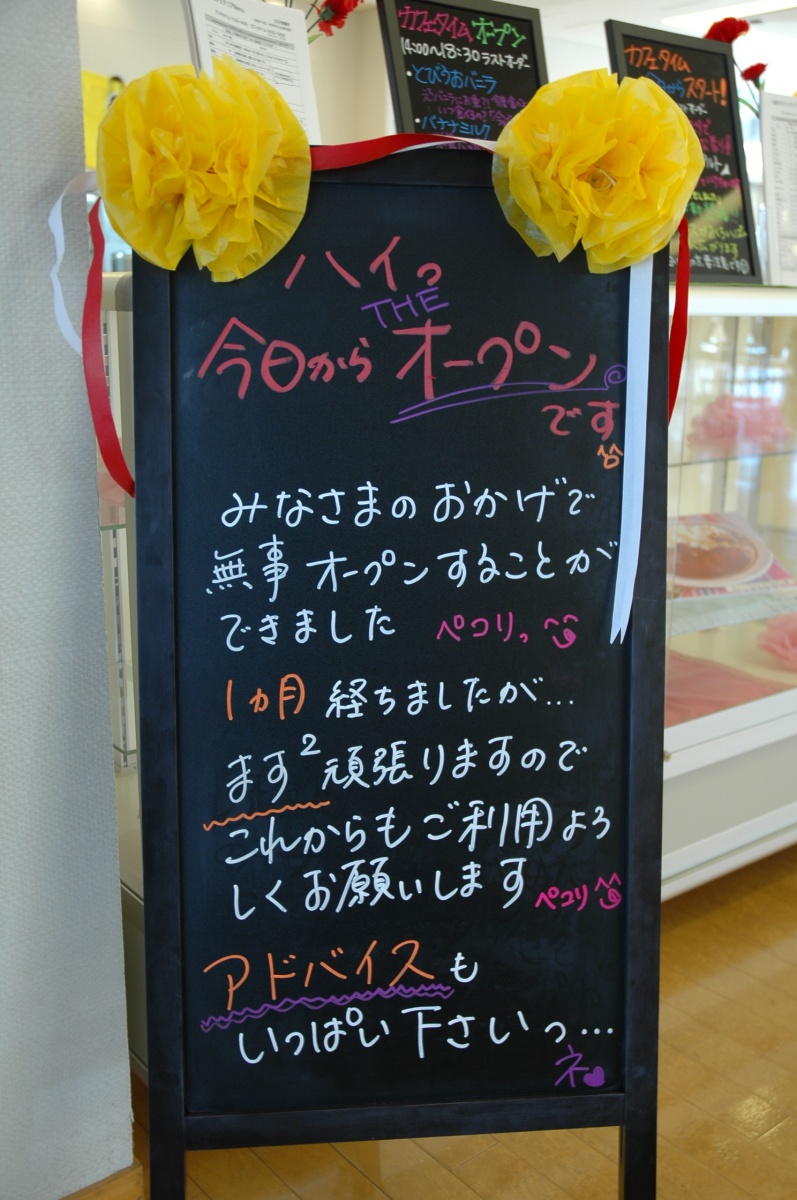 カフェタイム オープン
14:00〜18:30 ラストオーダー
・とびうおバニラ
・バナナミルク
カフェタイム
スタート!
ハイっ
THE
今日から オープン
です
みなさまの おかげで
無事 オープンすることが
できました ペコリっ
1ヵ月 経ちましたが…
ます² 頑張りますので
これからもご利用よろ
しくお願いします ペコリ
アドバイスも
いっぱい下さいっ…
ネ